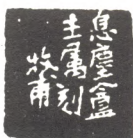 息塵盦
主属刻
牧甫